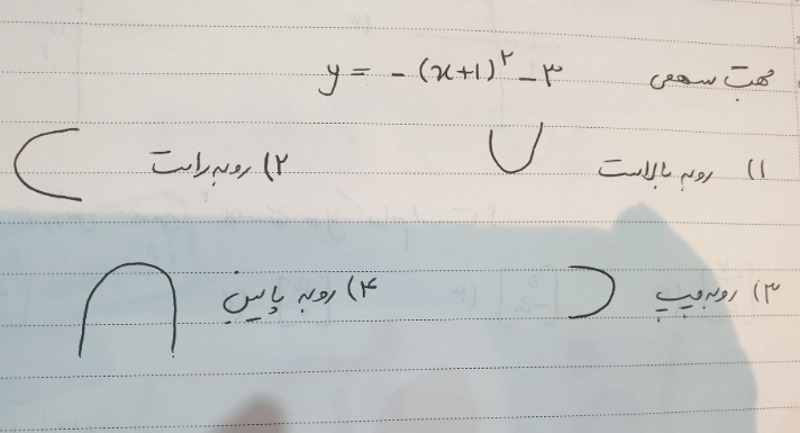 جهت سهمی y = - (x+1)² - ۳
۱) رو به بالاست ۲) رو به راست
۳) رو به چپ ۴) رو به پایین